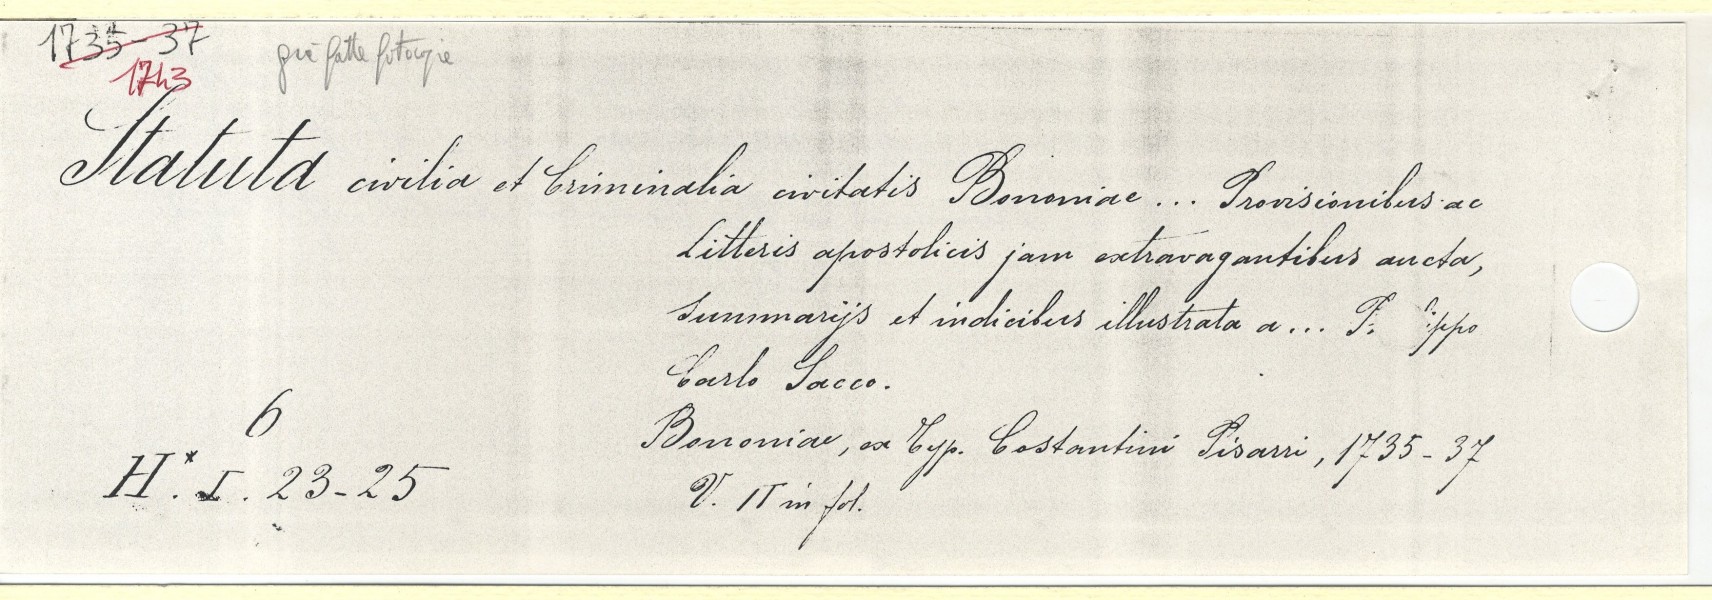 1735-37
1743
già fatte fotocopie
Statuta civilia et Criminalia civitatis Bononiae ... Provisionibus ac
Litteris apostolicis jam extravagantibus aucta,
summarijs et indicibus illustrata a ... F. ippo
Carlo Sacco.
Bononiae, ex Typ. Costantini Pisarri, 1735-37
V. II in fol.
6
H*. I. 23-25